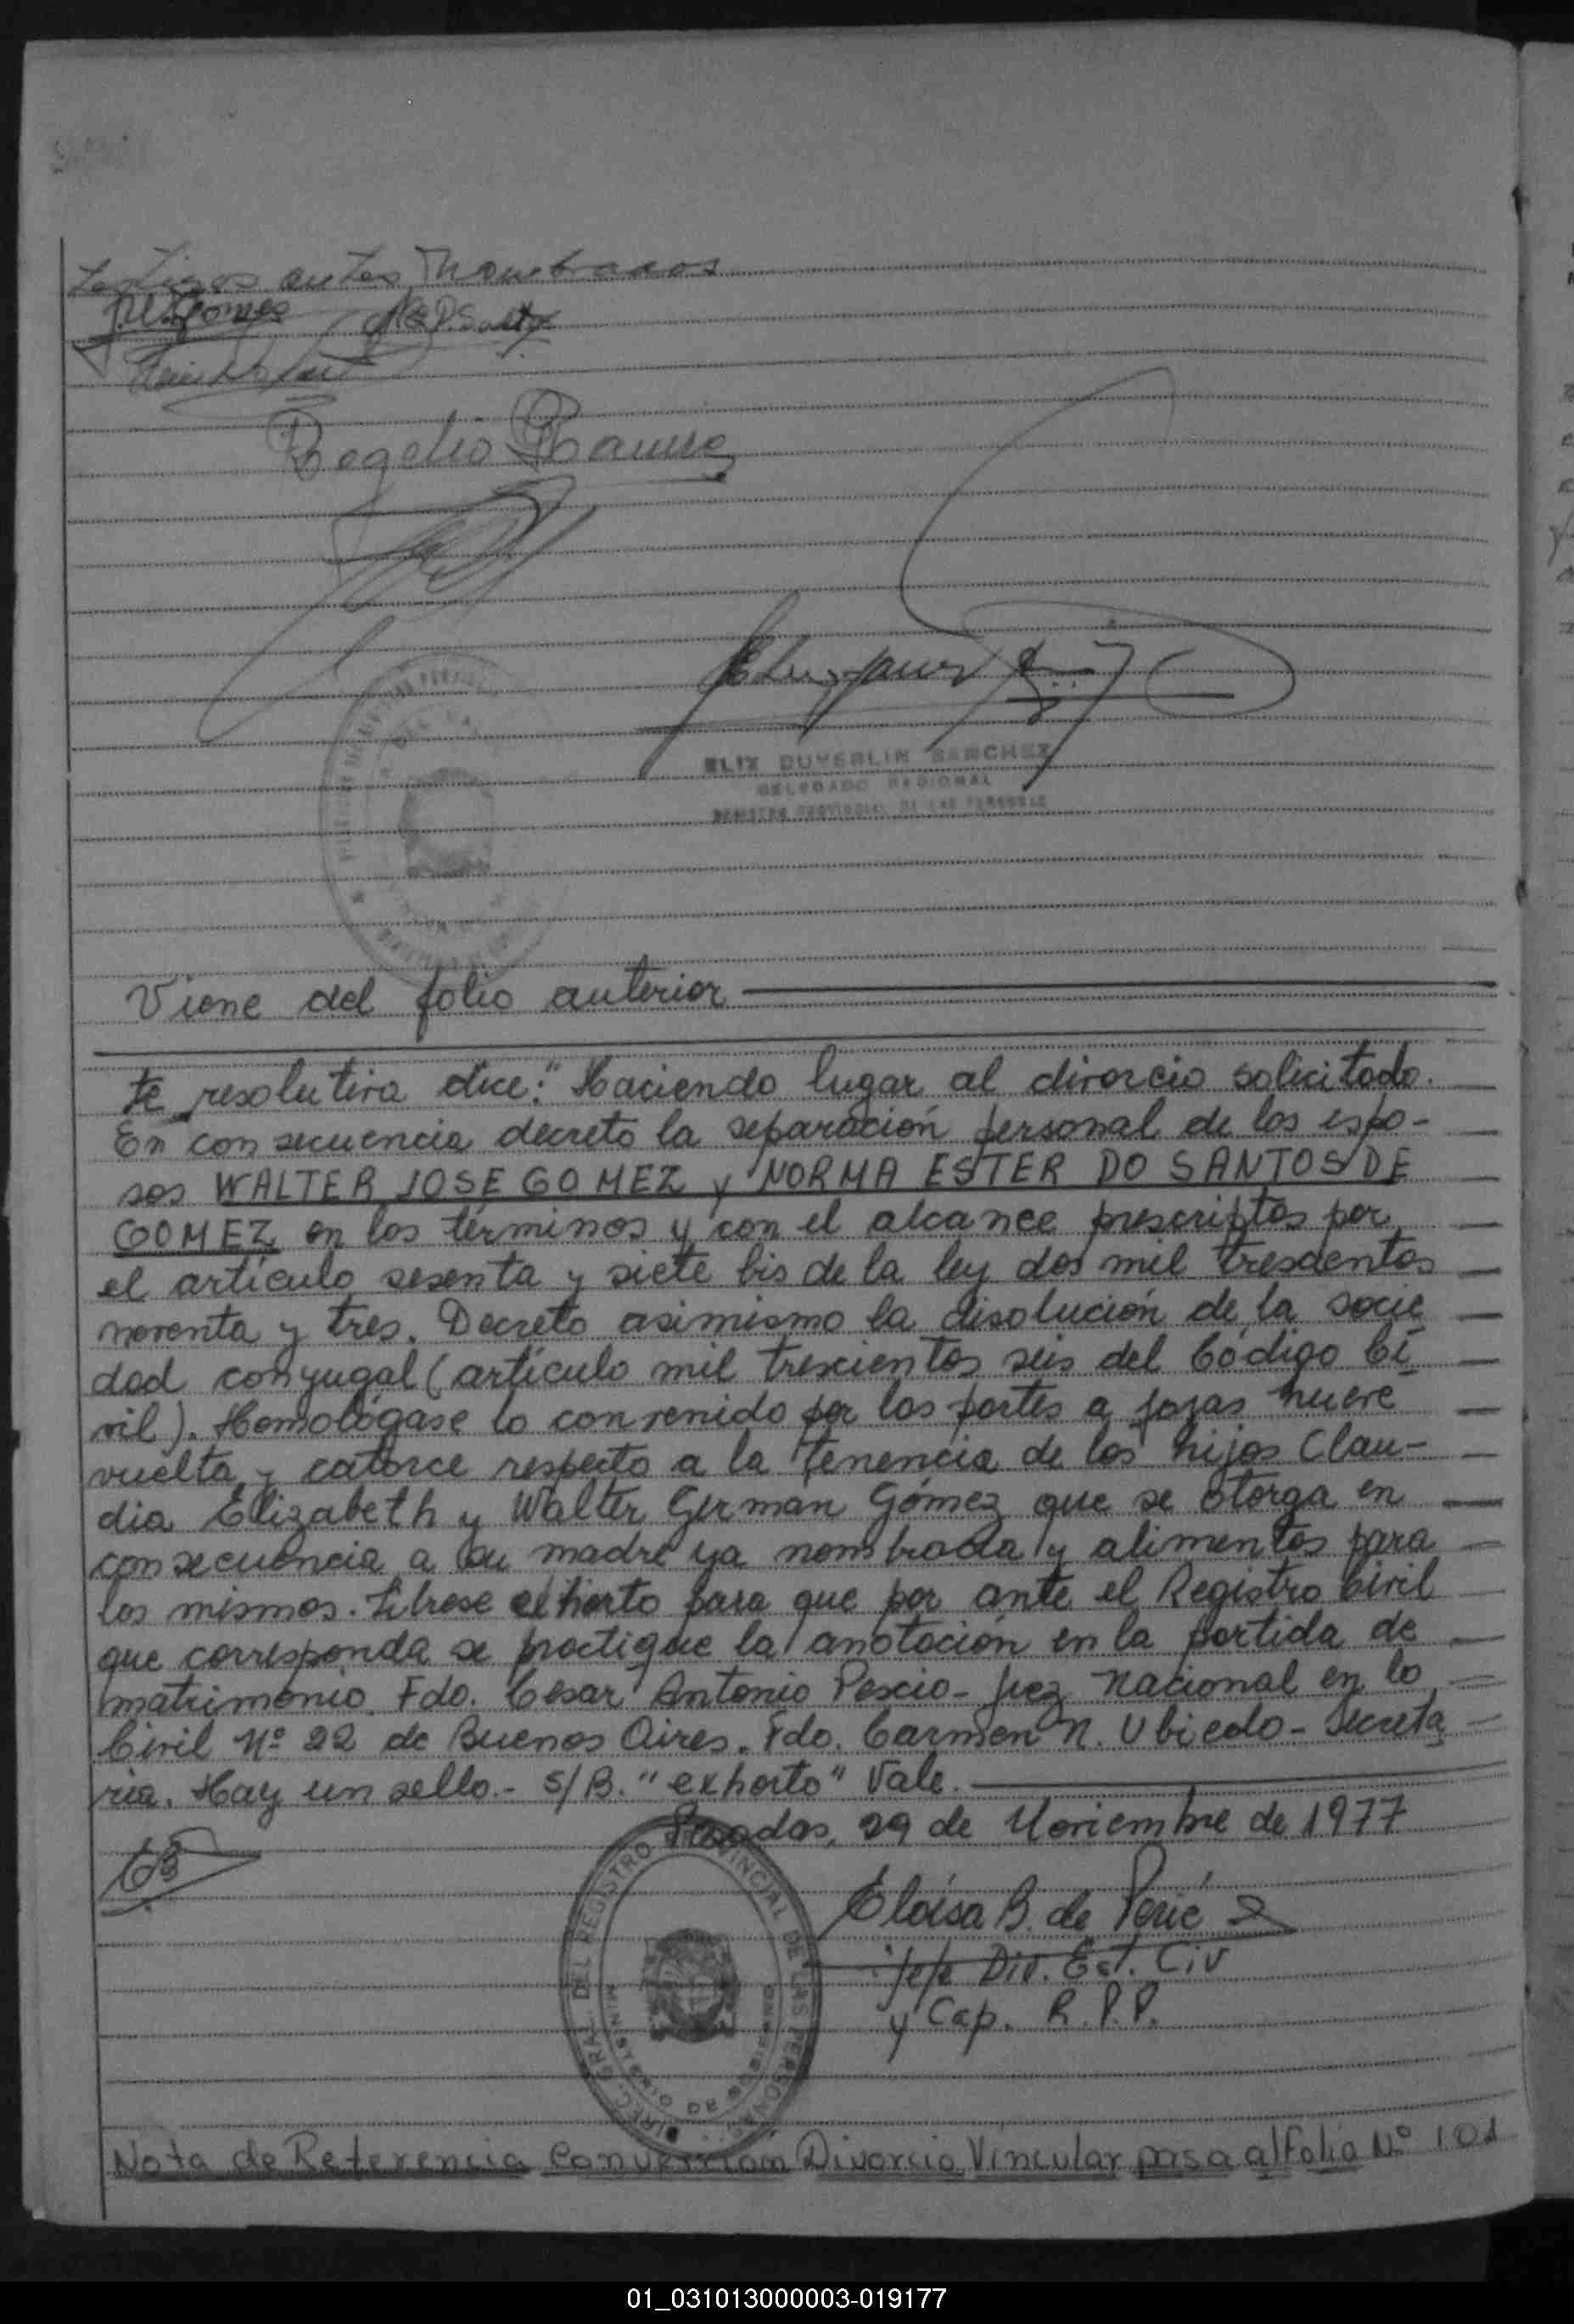 Testigos antes nombrados
J.W. Gomez N.E.D. Santos
Rogelio Ramirez
ELIX DUVERLIN SANCHEZ
DELEGADO REGIONAL
REGISTRO PROVINCIAL DE LAS PERSONAS
Viene del folio anterior
te resolutiva dice: "Haciendo lugar al divorcio solicitado.
En consecuencia decreto la separación personal de los espo-
sos WALTER JOSE GOMEZ y NORMA ESTER DO SANTOS DE
GOMEZ en los términos y con el alcance prescriptos por
el artículo sesenta y siete bis de la ley dos mil trescientos
noventa y tres. Decreto asimismo la disolución de la socie
dad conyugal (artículo mil trescientos seis del Código Ci
vil). Homológase lo convenido por las partes a fojas nueve
vuelta y catorce respecto a la tenencia de los hijos Clau-
dia Elizabeth y Walter Germán Gómez que se otorga en
consecuencia a su madre ya nombrada y alimentos para
los mismos. Líbrese exhorto para que por ante el Registro Civil
que corresponda se practique la anotación en la partida de
matrimonio. Fdo. César Antonio Pescio - Juez Nacional en lo
Civil Nº 22 de Buenos Aires. Fdo. Carmen N. Ubiedo - Secreta
ria. Hay un sello. - S/B. "exhorto" Vale.
Posadas, 29 de Noviembre de 1977
DIREC. GRAL. DEL REGISTRO PROVINCIAL DE LAS PERSONAS
Eloisa B. de Perié
Jefe Div. Est. Civ
y Cap. R.P.P.
Nota de Referencia Conversión Divorcio Vincular pasa al Folio Nº 101
01_031013000003-019177